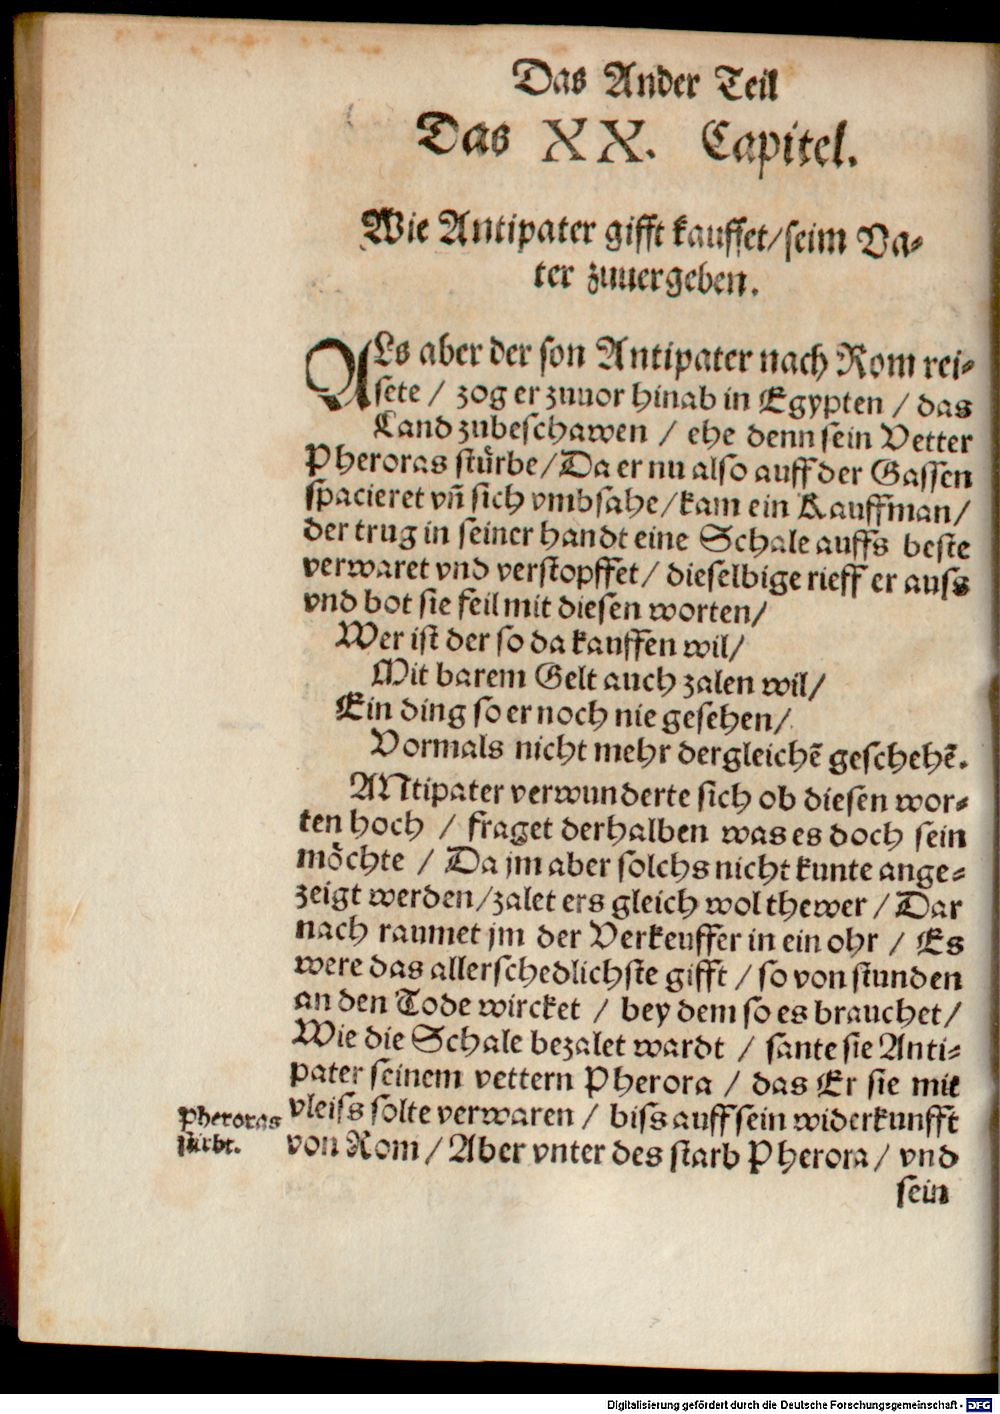 Das Ander Teil
Das XX. Capitel.
Wie Antipater gifft kauffet/seim Va-
ter zuuergeben.
ALs aber der son Antipater nach Rom rei-
sete / zog er zuuor hinab in Egypten / das
Land zubeschawen / ehe denn sein Vetter
Pheroras stürbe/Da er nu also auff der Gassen
spacieret vñ sich vmbsahe/kam ein Kauffman/
der trug in seiner handt eine Schale auffs beste
verwaret vnd verstopffet/ dieselbige rieff er auss
vnd bot sie feil mit diesen worten/
Wer ist der so da kauffen wil/
Mit barem Gelt auch zalen wil/
Ein ding so er noch nie gesehen/
Vormals nicht mehr dergleichẽ geschehẽ.
ANtipater verwunderte sich ob diesen wor-
ten hoch / fraget derhalben was es doch sein
möchte / Da jm aber solchs nicht kunte ange-
zeigt werden/zalet ers gleich wol thewer / Dar
nach raumet jm der Verkeuffer in ein ohr / Es
were das allerschedlichste gifft / so von stunden
an den Tode wircket / bey dem so es brauchet/
Wie die Schale bezalet wardt / sante sie Anti-
pater seinem vettern Pherora / das Er sie mit
vleiss solte verwaren / biss auff sein widerkunfft
von Rom / Aber vnter des starb Pherora / vnd
Pheroras
stirbt.
sein
Digitalisierung gefördert durch die Deutsche Forschungsgemeinschaft - DFG